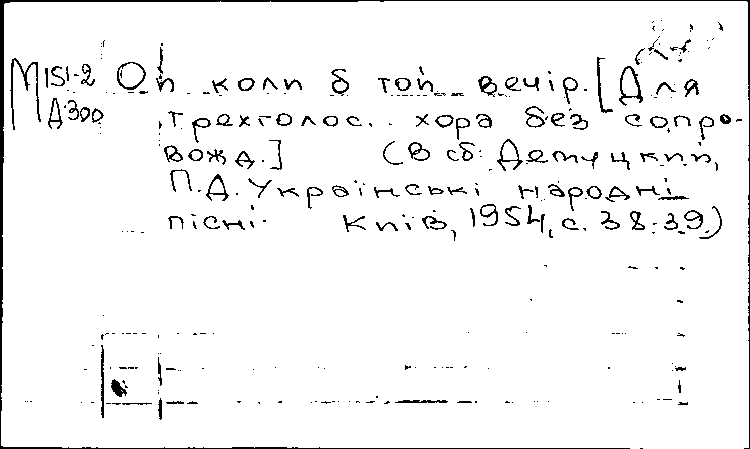 М151-2 Ой коли б той вечір. [Для
Д300 трехголос. хора без сопро-
вожд.] (В сб: Демуцкий,
П.Д. Українські народні
пісні. Київ, 1954, с. 38-39.)